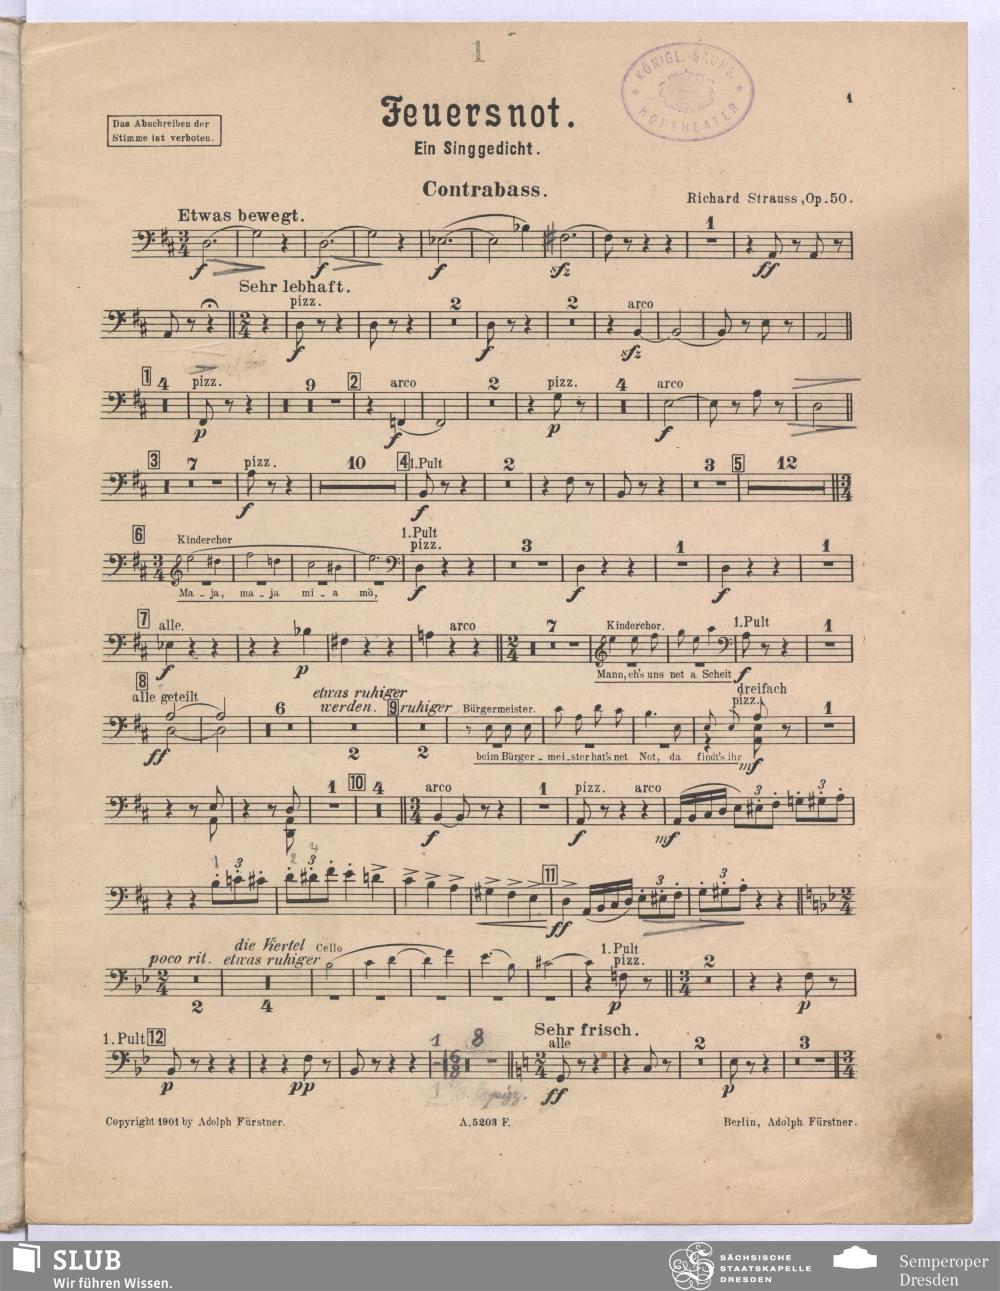 1
KÖNIGL. SÄCHS.
HOFTHEATER
1
Das Abschreiben der
Stimme ist verboten.
Feuersnot.
Ein Singgedicht.
Contrabass.
Richard Strauss, Op. 50.
Etwas bewegt.
1
f f f sfz ff
Sehr lebhaft.
pizz. 2 2 arco
f f sfz
1 4 pizz. 9 2 arco 2 pizz. 4 arco
p f p f
3 7 pizz. 10 4 1. Pult 2 3 5 12
f f
6 Kinderchor 1. Pult
pizz. 3 1 1
Ma - ja, ma - ja mi - a mö, f f f
7 alle. arco 7 Kinderchor. 1. Pult 1
f p Mann, eh's uns net a Scheit f
8
alle geteilt 6 etwas ruhiger
werden. 9 ruhiger Bürgermeister. dreifach
pizz. 1
ff 2 2 beim Bürger - mei - ster hat's net Not, da findt's ihr mf
1 10 4 arco 1 pizz. arco 3 3
f f mf
1 3 2 3 4 11 3 3
ff
poco rit. die Viertel
etwas ruhiger Cello 1. Pult
pizz. 2
2 4 p p
1. Pult 12 1 8 Sehr frisch.
alle 2 3
p pp pizz. ff p
Copyright 1901 by Adolph Fürstner. A. 5203 F. Berlin, Adolph Fürstner.
SLUB
Wir führen Wissen.
SÄCHSISCHE
STAATSKAPELLE
DRESDEN
Semperoper
Dresden